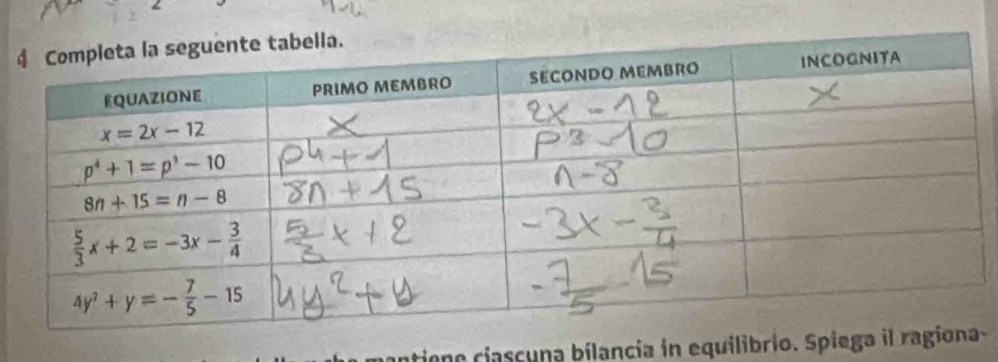 4 Completa la seguente tabella.
EQUAZIONE PRIMO MEMBRO SECONDO MEMBRO INCOGNITA
x = 2x − 12 x 2x − 12 x
p⁴ + 1 = p³ − 10 p4 + 1 p3 − 10
8n + 15 = n − 8 8n + 15 n − 8
5/3 x + 2 = −3x − 3/4 5/3 x + 2 −3x − 3/4
4y² + y = − 7/5 − 15 4y² + y − 7/5 − 15
mantiene ciascuna bilancia in equilibrio. Spiega il ragiona-